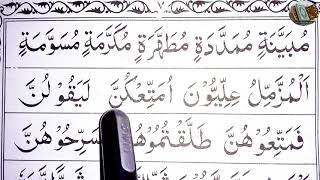 مُبَيَّنَةٍ مُمَدَّدَةٍ مُطَهَّرَةٍ مُكَرَّمَةٍ مُسَوَّمَةٍ
اَلْمُزَّمِّلُ عِلِّيُّوْنَ اُمَتِّعْكُنَّ لَيَقُوْلُنَّ
فَمَتِّعُوْهُنَّ طَلَّقْتُمُوْهُنَّ سَرِّحُوْهُنَّ